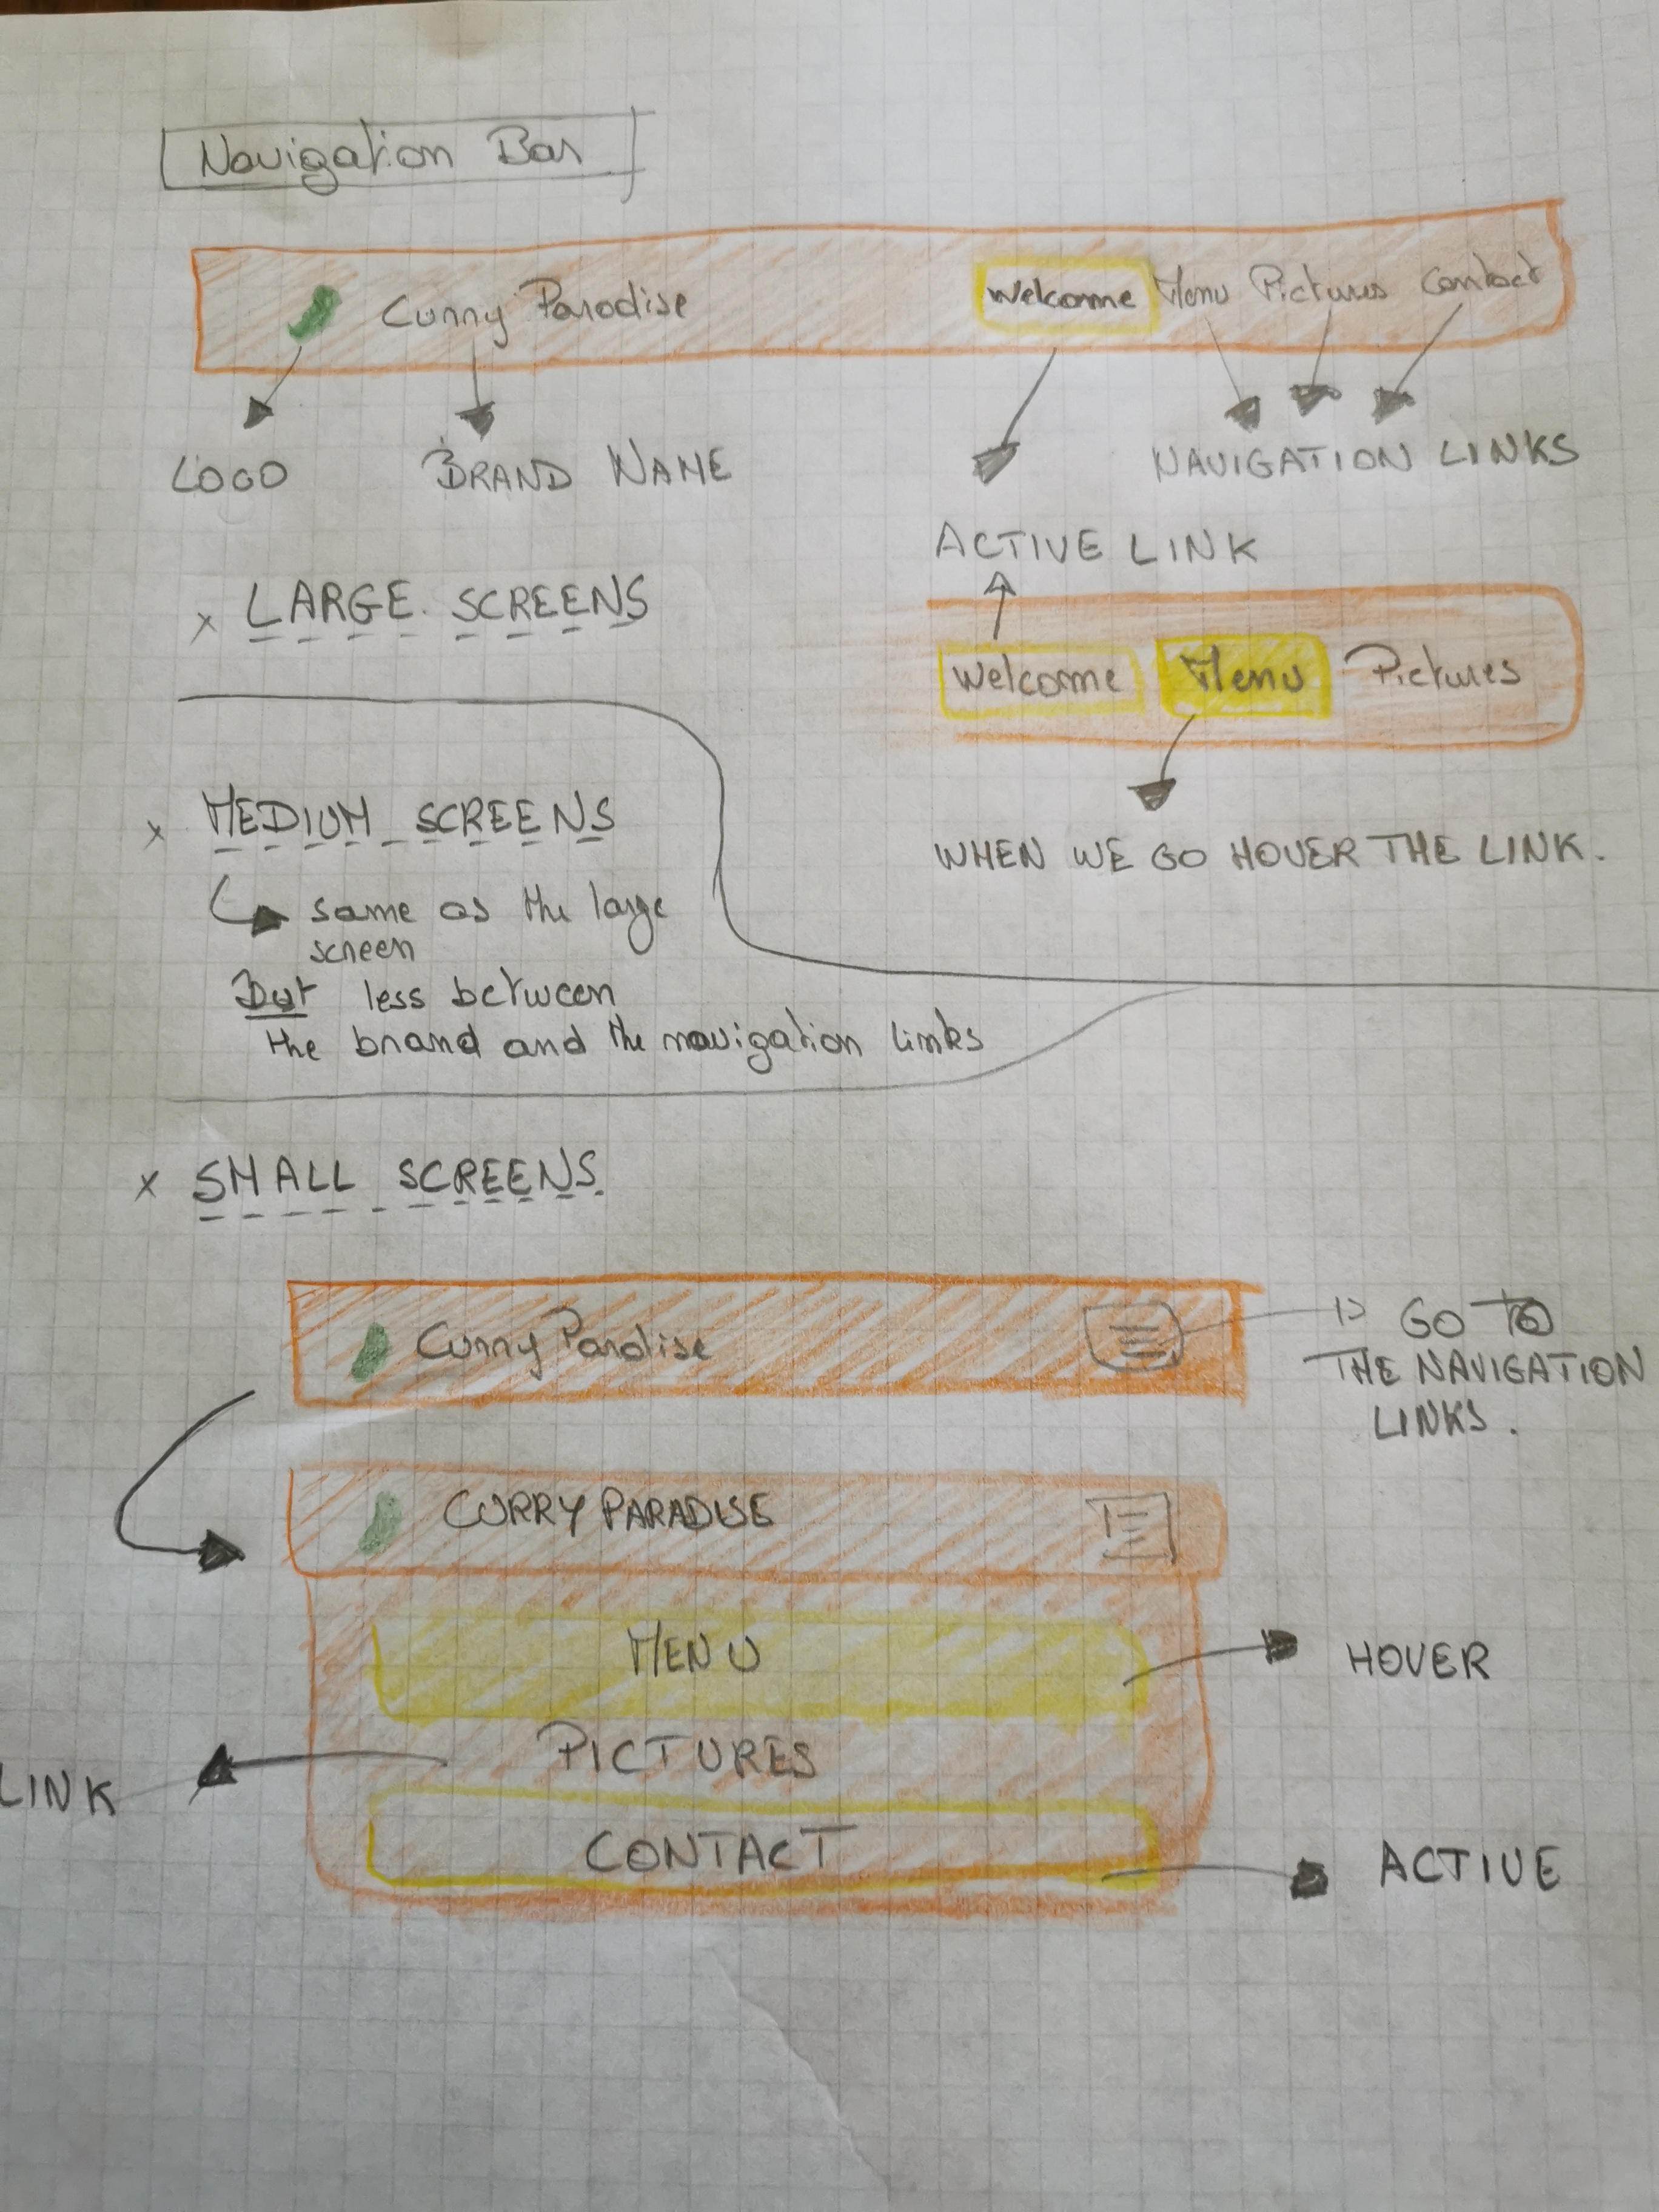 Navigation Bar
Curry Paradise
Welcome Menu Pictures Contact
LOGO
BRAND NAME
NAVIGATION LINKS
ACTIVE LINK
x LARGE SCREENS
Welcome Menu Pictures
WHEN WE GO HOVER THE LINK.
x MEDIUM SCREENS
same as the large
screen
But less between
the brand and the navigation links
x SMALL SCREENS.
Curry Paradise
GO TO
THE NAVIGATION
LINKS.
CURRY PARADISE
MENU
HOVER
PICTURES
LINK
CONTACT
ACTIVE